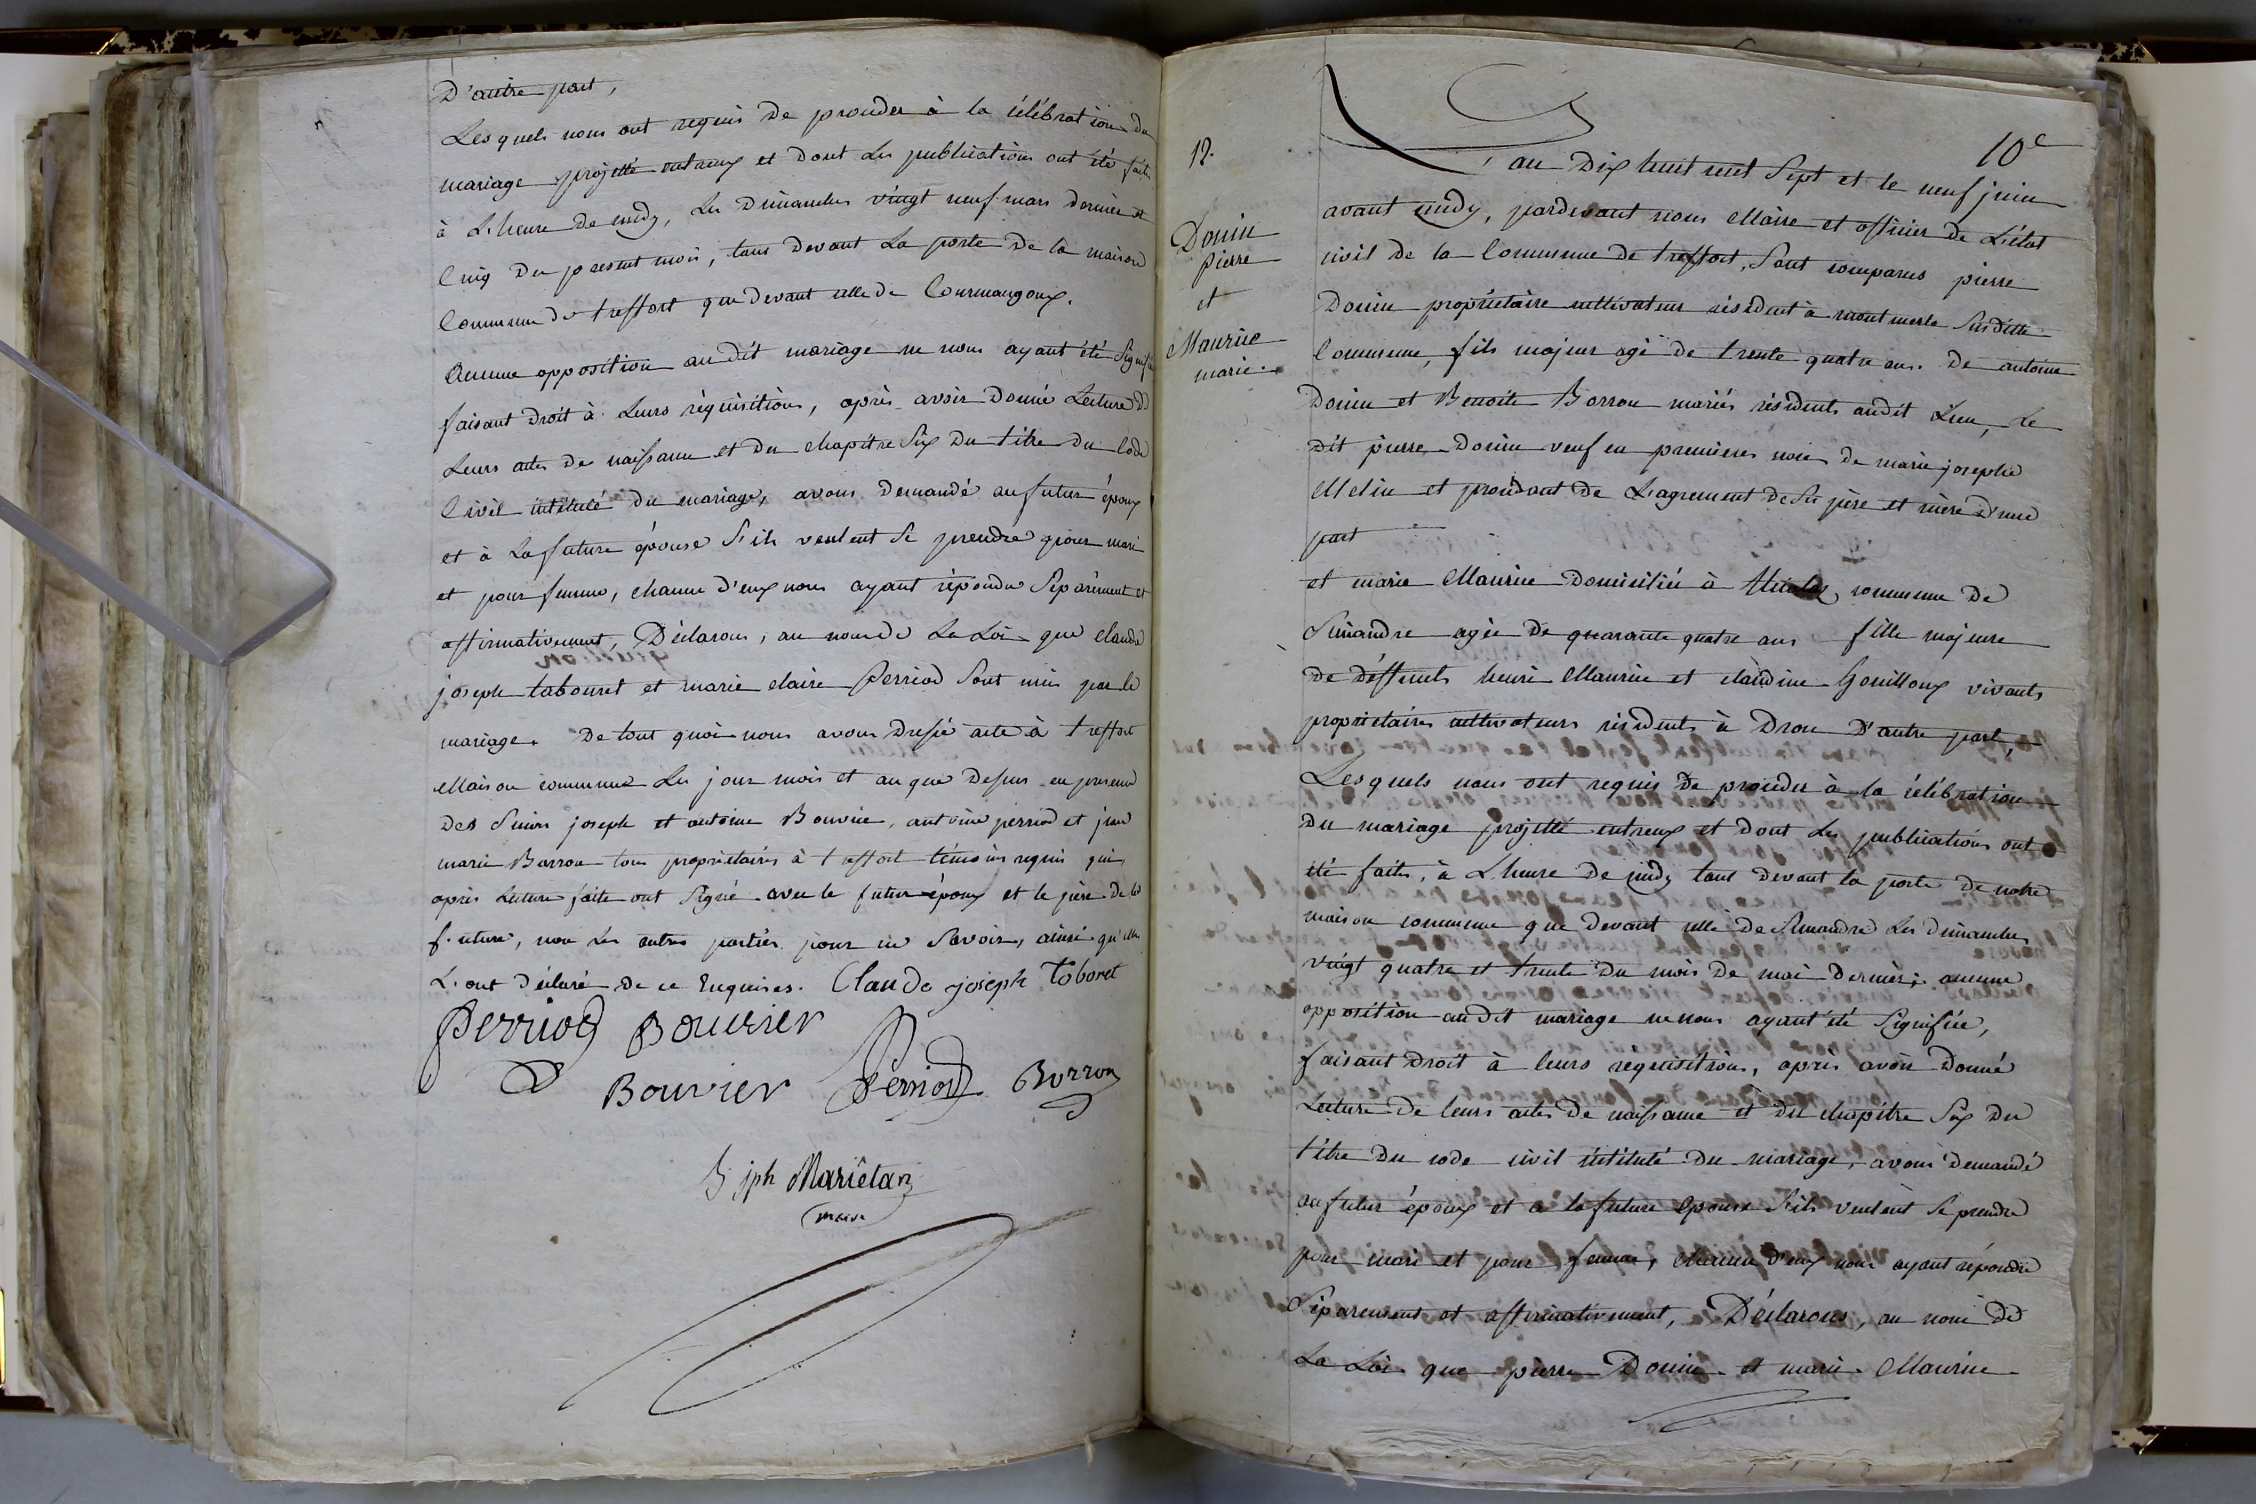 D'autre part,
Lesquels nous ont requis de proceder à la célébration du
mariage projetté entreux et dont les publications ont été faites
à L'heure de midy, les Dimanches vingt neuf mars dernier et
Cinq du present mois, tans devant La porte De la maison
Commune de treffort que devant celle de Courmangoux.
Aucune opposition audit mariage ne nous ayant été Signifiée
faisant Droit à Leurs réquisitions, après avoir Donné Lecture de
Leurs actes de naissance et du chapitre Six Du titre Du Code
Civil intitulé Du mariage, avons demandé au futur époux
et à La future épouse S'ils veulent Se prendre pour mari
et pour femme, chacun d'eux nous ayant répondu Séparément et
affirmativement, Déclarons, au nom de La Loi que claude
joseph tabouret et marie claire Perriod Sont unis par le
mariage. De tout quoi nous avons Dressé acte à treffort
Maison commune Les jour mois et an que Dessus en presence
Des Sieurs joseph et antoine Bouvier, antoine perriod et jean
marie Borron tous propriétaires à treffort témoins requis qui
après Lecture faite ont Signé avec le futur époux et le père de la
future, non les autres parties pour ne Savoir, ainsi qu'elles
L'ont déclaré de ce Enquises. Claude joseph Taboret
Perriod Bouvier
Bouvier Perriod Borron
jph Mariêtan
maire
10e
12.
L'an Dix huit cent Sept et le neuf juin
Donin
pierre
et
Maurice
marie.
avant midy, pardevant nous Maire et officier de L'état
civil de la Commune de treffort, Sont comparus pierre
Donin propriétaire cultivateur résident à montmerle Susditte
Commune, fils majeur agé de trente quatre ans. De antoine
Donin et Benoite Borron mariés résidents audit Lieu, Le
Dit pierre Donin veuf en premieres noces de marie josephe
Melin et procédant de L'agrement de Ses père et mère D'une
part
et marie Maurice Domiciliée à commune De
Simandre agée de quarante quatre ans fille majeure
de deffunts henri Maurice et claudine Gouilloux vivants
propriétaires cultivateurs résidents à Drom D'autre part,
Lesquels nous ont requis De proceder à la célébration
Du mariage projetté entreux et Dont les publications ont
été faites, à L'heure De midy tant devant la porte De notre
maison commune que devant celle de Simandre Les dimanches
vingt quatre et trente Du mois De mai Dernier; aucune
opposition audit mariage ne nous ayant été Signifiée,
faisant Droit à leurs requisitions, après avoir Donné
Lecture De leurs actes de naissance et du chapitre Six Du
titre Du code civil intitulé Du mariage, avons demandé
au futur époux et a la future épouse S'ils veulent Se prendre
pour mari et pour femme, chacun d'eux nous ayant répondu
Séparement et affirmativement, Déclarons, au nom de
La Loi que pierre Donin et marie Maurice